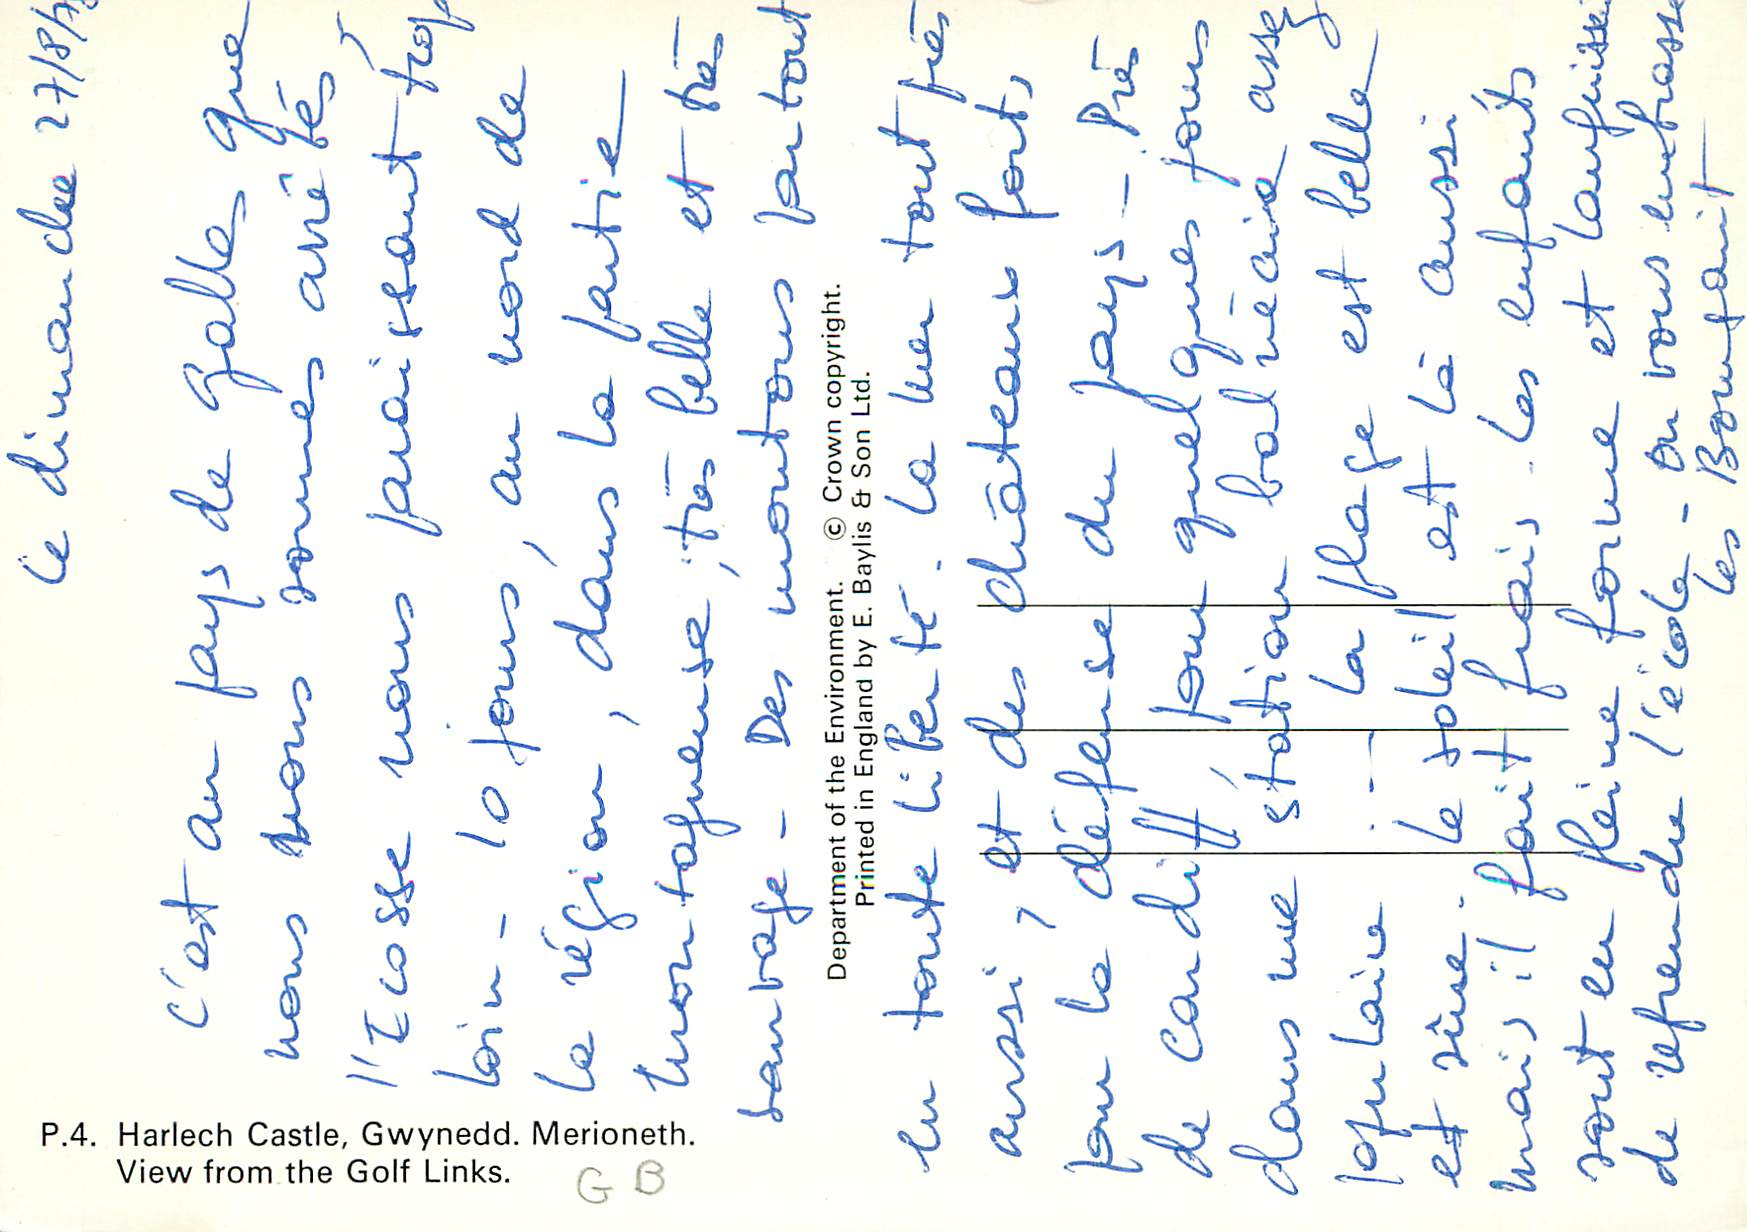 Le dimanche 27/8/
C'est au pays de Galle que
nous nous sommes arrêtés
l'Ecosse nous paraissant trop
loin - 10 jours, au nord de
la région, dans la partie
montagneuse, très belle et très
sauvage - Des moutons partout
en toute liberté - la mer tout près
aussi, et des châteaux forts
pour la défense du pays - Près
de Cardiff, pour quelques jours
dans une station balnéaire assez
populaire ... la plage est belle
et sûre. le soleil est là aussi
mais il fait frais. Les enfants
sont en pleine forme et
de reprendre l'école - On vous embrasse
Les
Department of the Environment. © Crown copyright.
Printed in England by E. Baylis & Son Ltd.
P.4. Harlech Castle, Gwynedd. Merioneth.
View from the Golf Links.
GB